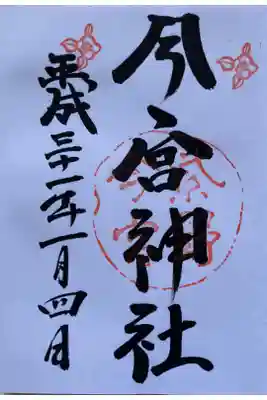 今宮神社
平成三十一年一月四日